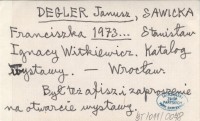 DEGLER Janusz, SAWICKA
Franciszka 1973... Stanisław
Ignacy Witkiewicz. Katalog
Wystawy. — Wrocław.
Był też afisz i zaproszenie
na otwarcie wystawy.